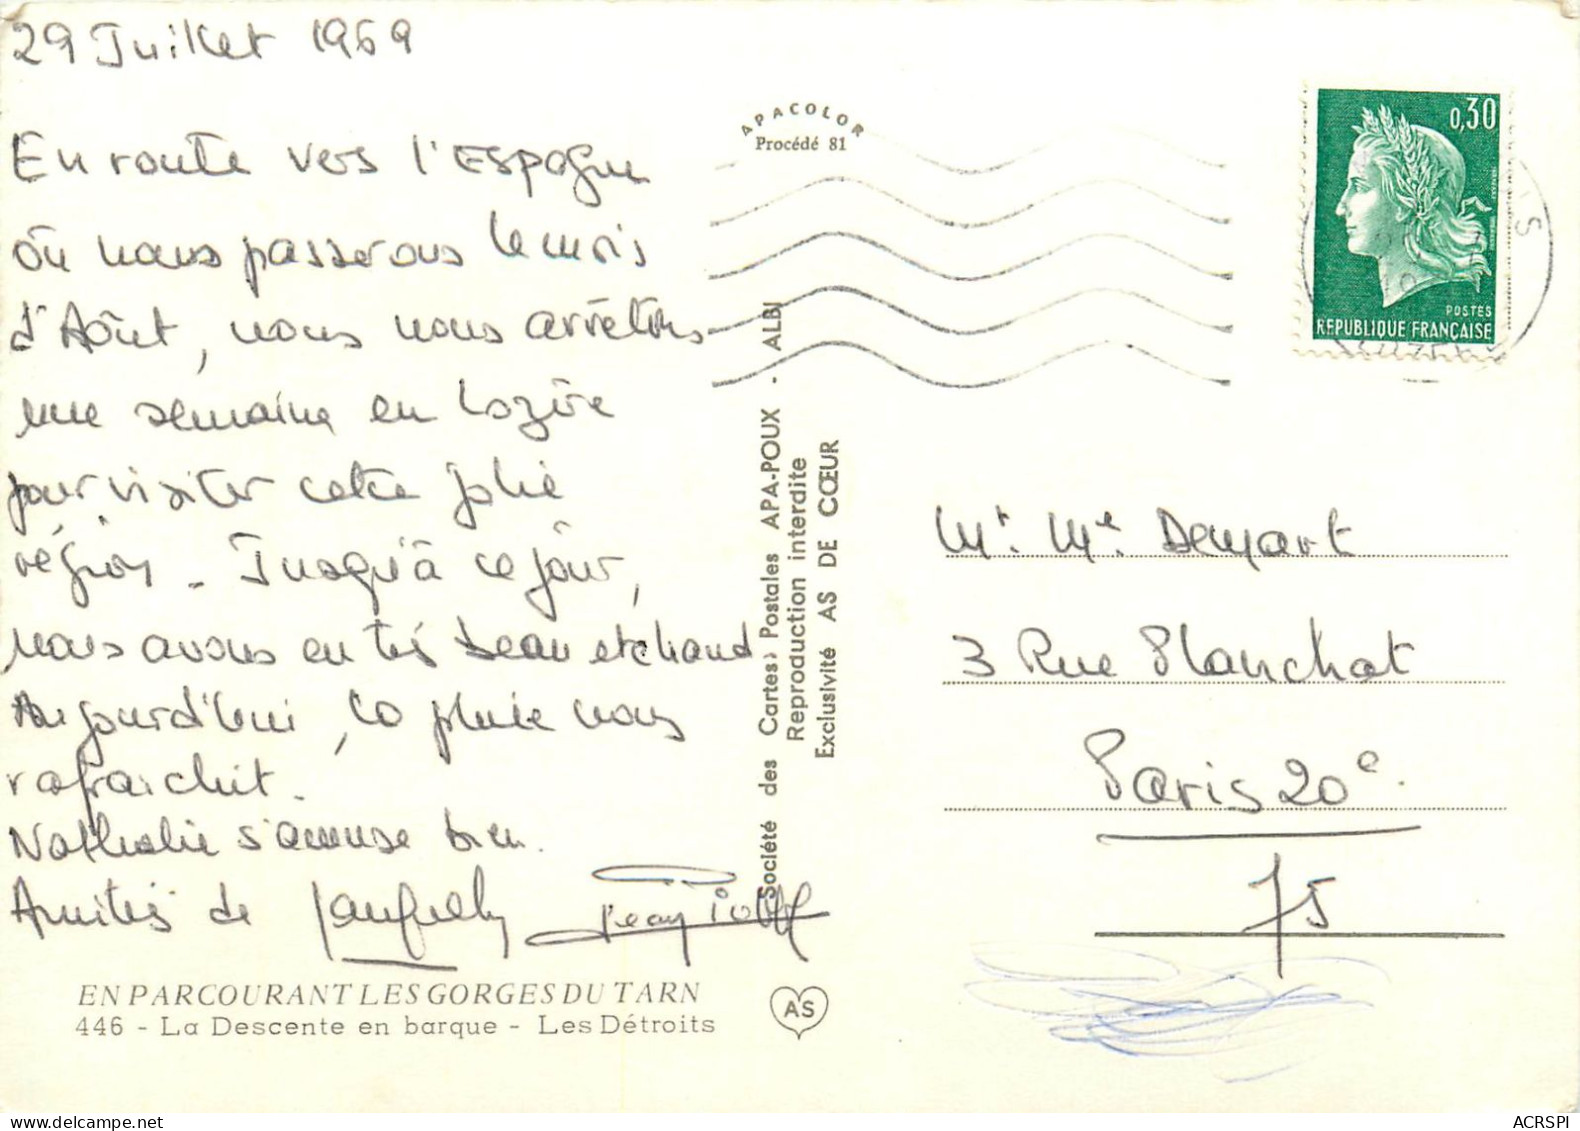 29 Juillet 1969
En route vers l'Espagne
où nous passerons le mois
d'Août, nous nous arrêtons
une semaine en Lozère
pour visiter cette jolie
région - Jusqu'à ce jour,
nous avons eu très beau et chaud
Aujourd'hui, la pluie nous
rafraichit.
Nathalie s'amuse bien.
Amitiés de
EN PARCOURANT LES GORGES DU TARN
446 - La Descente en barque - Les Détroits
APACOLOR
Procédé 81
Société des Cartes Postales APA-POUX - ALBI
Reproduction interdite
Exclusivité AS DE CŒUR
AS
0,30
POSTES
REPUBLIQUE FRANÇAISE
Mr. Me. Demart
3 Rue Planchat
Paris 20e.
75
ACRSPI